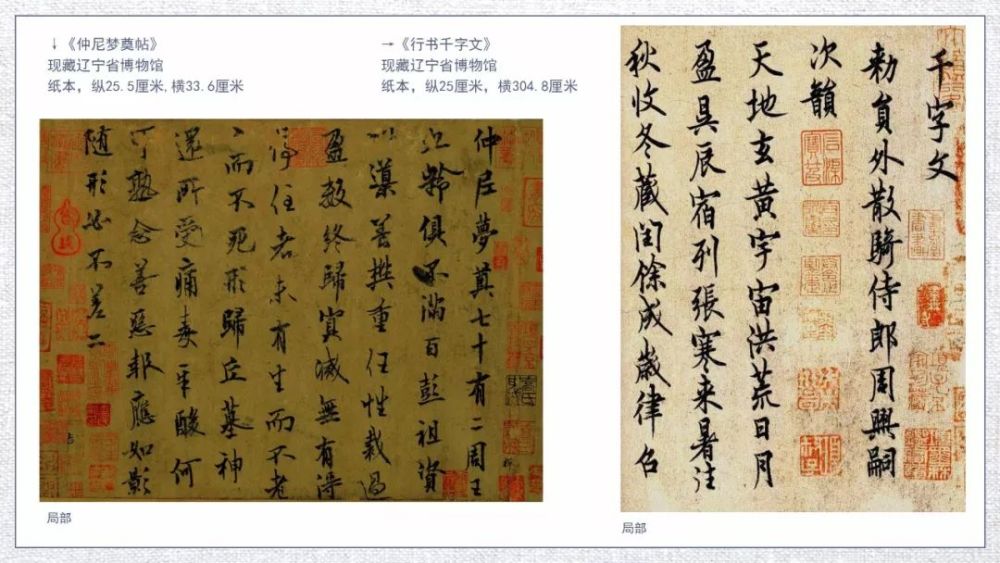 ↓《仲尼梦奠帖》
现藏辽宁省博物馆
纸本，纵25.5厘米,横33.6厘米
→《行书千字文》
现藏辽宁省博物馆
纸本，纵25厘米，横304.8厘米
仲尼夢奠七十有二周王
九齡俱不滿百彭祖資
以導養樊重任性裁過
盈數終歸冥滅無有得
停住者未有生而不老
老而不死形歸丘墓神
還所受痛毒辛酸何
可熟念善惡報應如影
随形必不差二
局部
千字文
勅員外散騎侍郎周興嗣
次韻
天地玄黄宇宙洪荒日月
盈昃辰宿列張寒来暑往
秋收冬蔵閏餘成歲律呂
局部